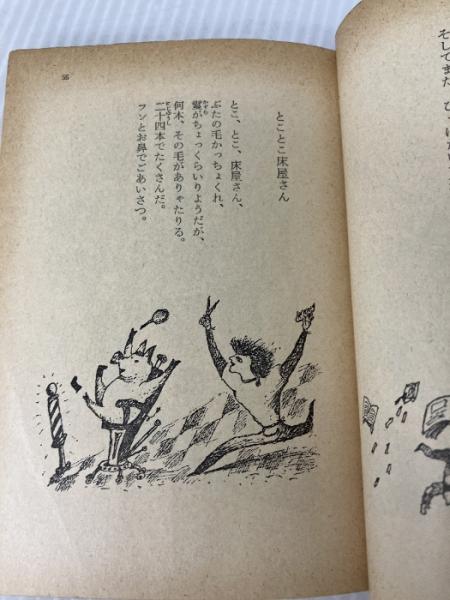 そしてまた
とことこ床屋さん
とこ、とこ、床屋さん、
ぶたの毛かっちょくれ、
鬘がちょっくらいりようだが、
何本、その毛がありゃたりる。
二十四本でたくさんだ。
フンとお鼻でごあいさつ。
56